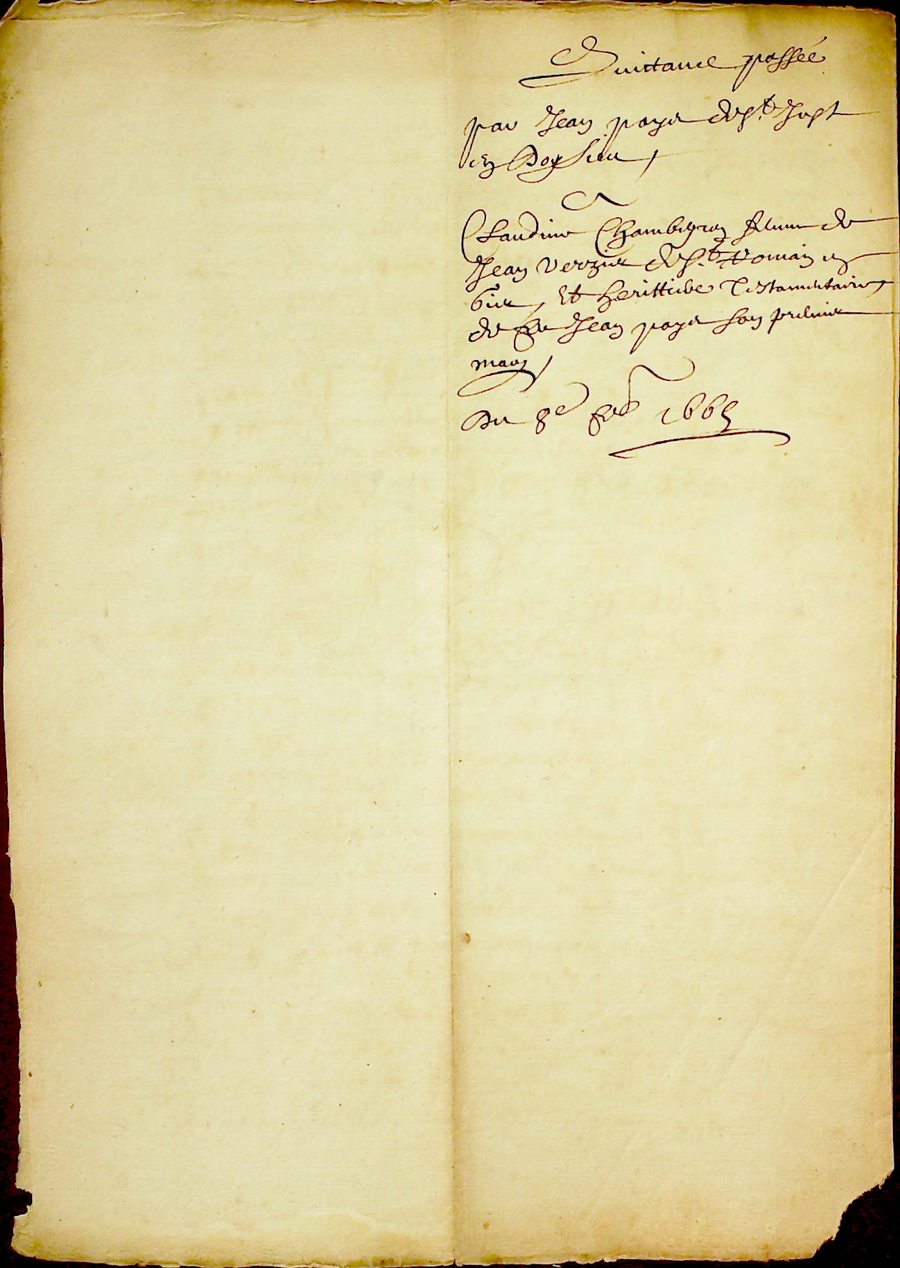 Quittance passée
par Jean paye de St Just
en Doysieu,
A
Claudine Chambeyron femme de
Jean Verzier de St Romain en
Gier, et herittiere Testamentaire
de feu Jean paye son premier
mary,
Du 8e 1665